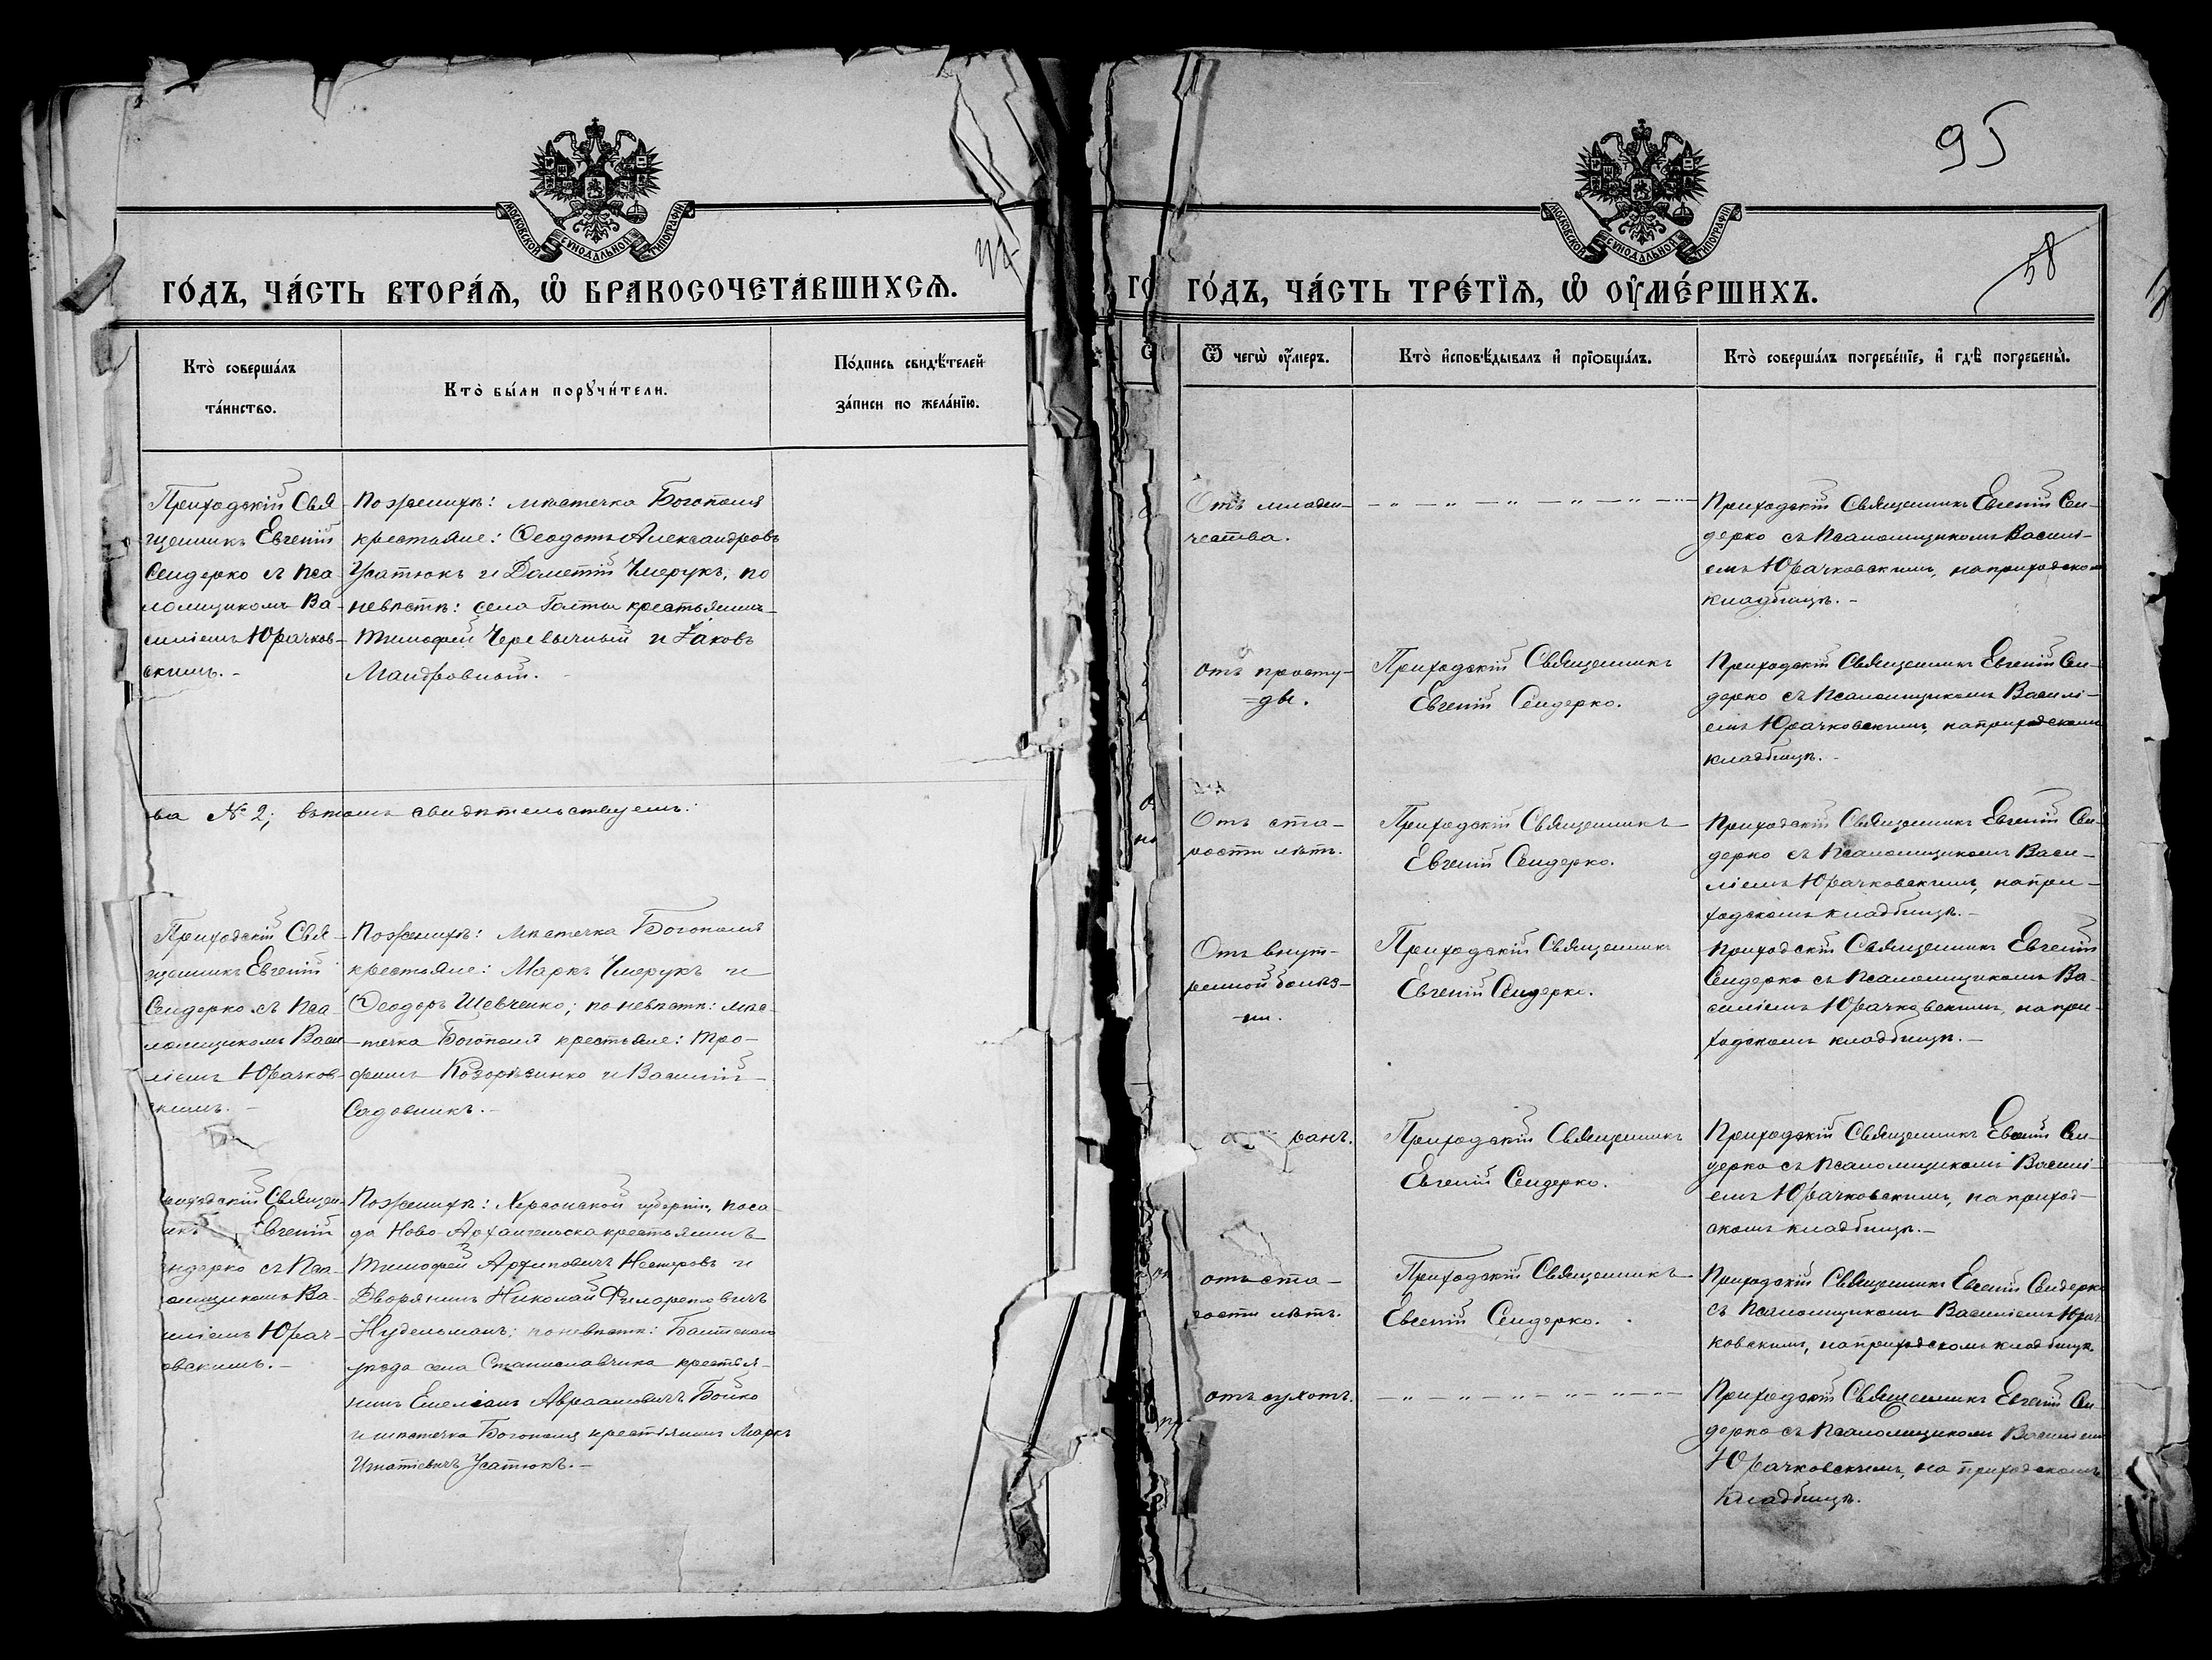 МОСКОВСКОЙ СѴНОДАЛЬНОЙ ТИПОГРАФІИ
ГО́ДЪ, ЧА́СТЬ ВТОРА́Я, Ѡ҆ БРАКОСОЧЕТА́ВШИХСѦ.
Кто̀ соверша́лъ
та́инство.
Кто̀ бы́ли порꙋчи́тели.
По́дпись свидѣ́телей
за́писи по жела́нїю.
Приходскій Свя-
щенникъ Евгеній
Сендерко съ Пса-
ломщикомъ Ва-
силіемъ Юрачков-
скимъ.-
По женихѣ: мѣстечка Богополя
крестьяне: Ѳеодотъ Александровъ
Усатюкъ и Дометій Чмерукъ; по
невѣстѣ: села Голты крестьянинъ
Тимофей Черевычный и Іаковъ
Мандровный.-
ва № 2; въ томъ свидѣтельствуемъ:
Приходскій Свя-
щенникъ Евгеній
Сендерко съ Пса-
ломщикомъ Васи-
ліемъ Юрачков-
скимъ.-
По женихѣ: Мѣстечка Богополя
крестьяне: Маркъ Чмерукъ и
Ѳеодоръ Шевченко; по невѣстѣ: мѣс-
течка Богополя крестьяне: Тро-
фимъ и Василій
Садовникъ.-
Священ-
Евгеній
ендерко съ Пса-
омщикомъ Ва-
силіемъ Юрач-
овскимъ.-
По женихѣ: Херсонской губерніи, поса-
да Ново-Архангельска крестьянинъ
Тимофей Архиповичъ Нестеровъ и
Дворянинъ Николай Филаретовичъ
Нудельманъ; по невѣстѣ: Балтскаго
уѣзда села Станиславчика крестья-
нинъ Емеліанъ Авраамовичъ Бойко
и мѣстечка Богополя крестьянинъ Маркъ
Игнатіевичъ Усатюкъ.-
95
МОСКОВСКОЙ СѴНОДАЛЬНОЙ ТИПОГРАФІИ
58
ГО́ДЪ, ЧА́СТЬ ТРЕ́ТЇѦ, Ѡ҆ ОУ҆МЕ́РШИХЪ.
Ѿ чегѡ̀ оу҆́меръ.
Кто̀ и҆сповѣ́дывалъ и҆ прїѡбща́лъ.
Кто̀ соверша́лъ погребе́нїе, и҆ гдѣ̀ погребены̀.
Отъ младен-
чества.
Приходскій Священникъ Евгеній Сен-
дерко съ Псаломщикомъ Василі-
емъ Юрачковскимъ, на приходскомъ
кладбищѣ.-
отъ просту-
=ды.
Приходскій Священникъ
Евгеній Сендерко.
Приходскій Священникъ Евгеній Сен-
дерко съ Псаломщикомъ Василі-
емъ Юрачковскимъ, на приходскомъ
кладбищѣ.-
Отъ ста-
рости лѣтъ.
Приходскій Священникъ
Евгеній Сендерко.
Приходскій Священникъ Евгеній Сен-
дерко съ Псаломщикомъ Васи-
ліемъ Юрачковскимъ, на при-
ходскомъ кладбищѣ.-
Отъ внут-
ренной болѣз-
ни.
Приходскій Священникъ
Евгеній Сендерко.
Приходскій Священникъ Евгеній
Сендерко съ Псаломщикомъ Ва-
силіемъ Юрачковскимъ, на при-
ходскомъ кладбищѣ.-
ранъ.
Приходскій Священникъ
Евгеній Сендерко.
Приходскій Священникъ Евгеній Сен-
дерко съ Псаломщикомъ Василі-
емъ Юрачковскимъ, на приход-
скомъ кладбищѣ.-
отъ ста-
рости лѣтъ.
Приходскій Священникъ
Евгеній Сендерко.
Приходскій Священникъ Евгеній Сендерко
съ Псаломщикомъ Василіемъ Юрач-
ковскимъ, на приходскомъ кладбищѣ.
отъ сухотъ.
Приходскій Священникъ Евгеній Сен-
дерко съ Псаломщикомъ Василіемъ
Юрачковскимъ, на приходскомъ
кладбищѣ.